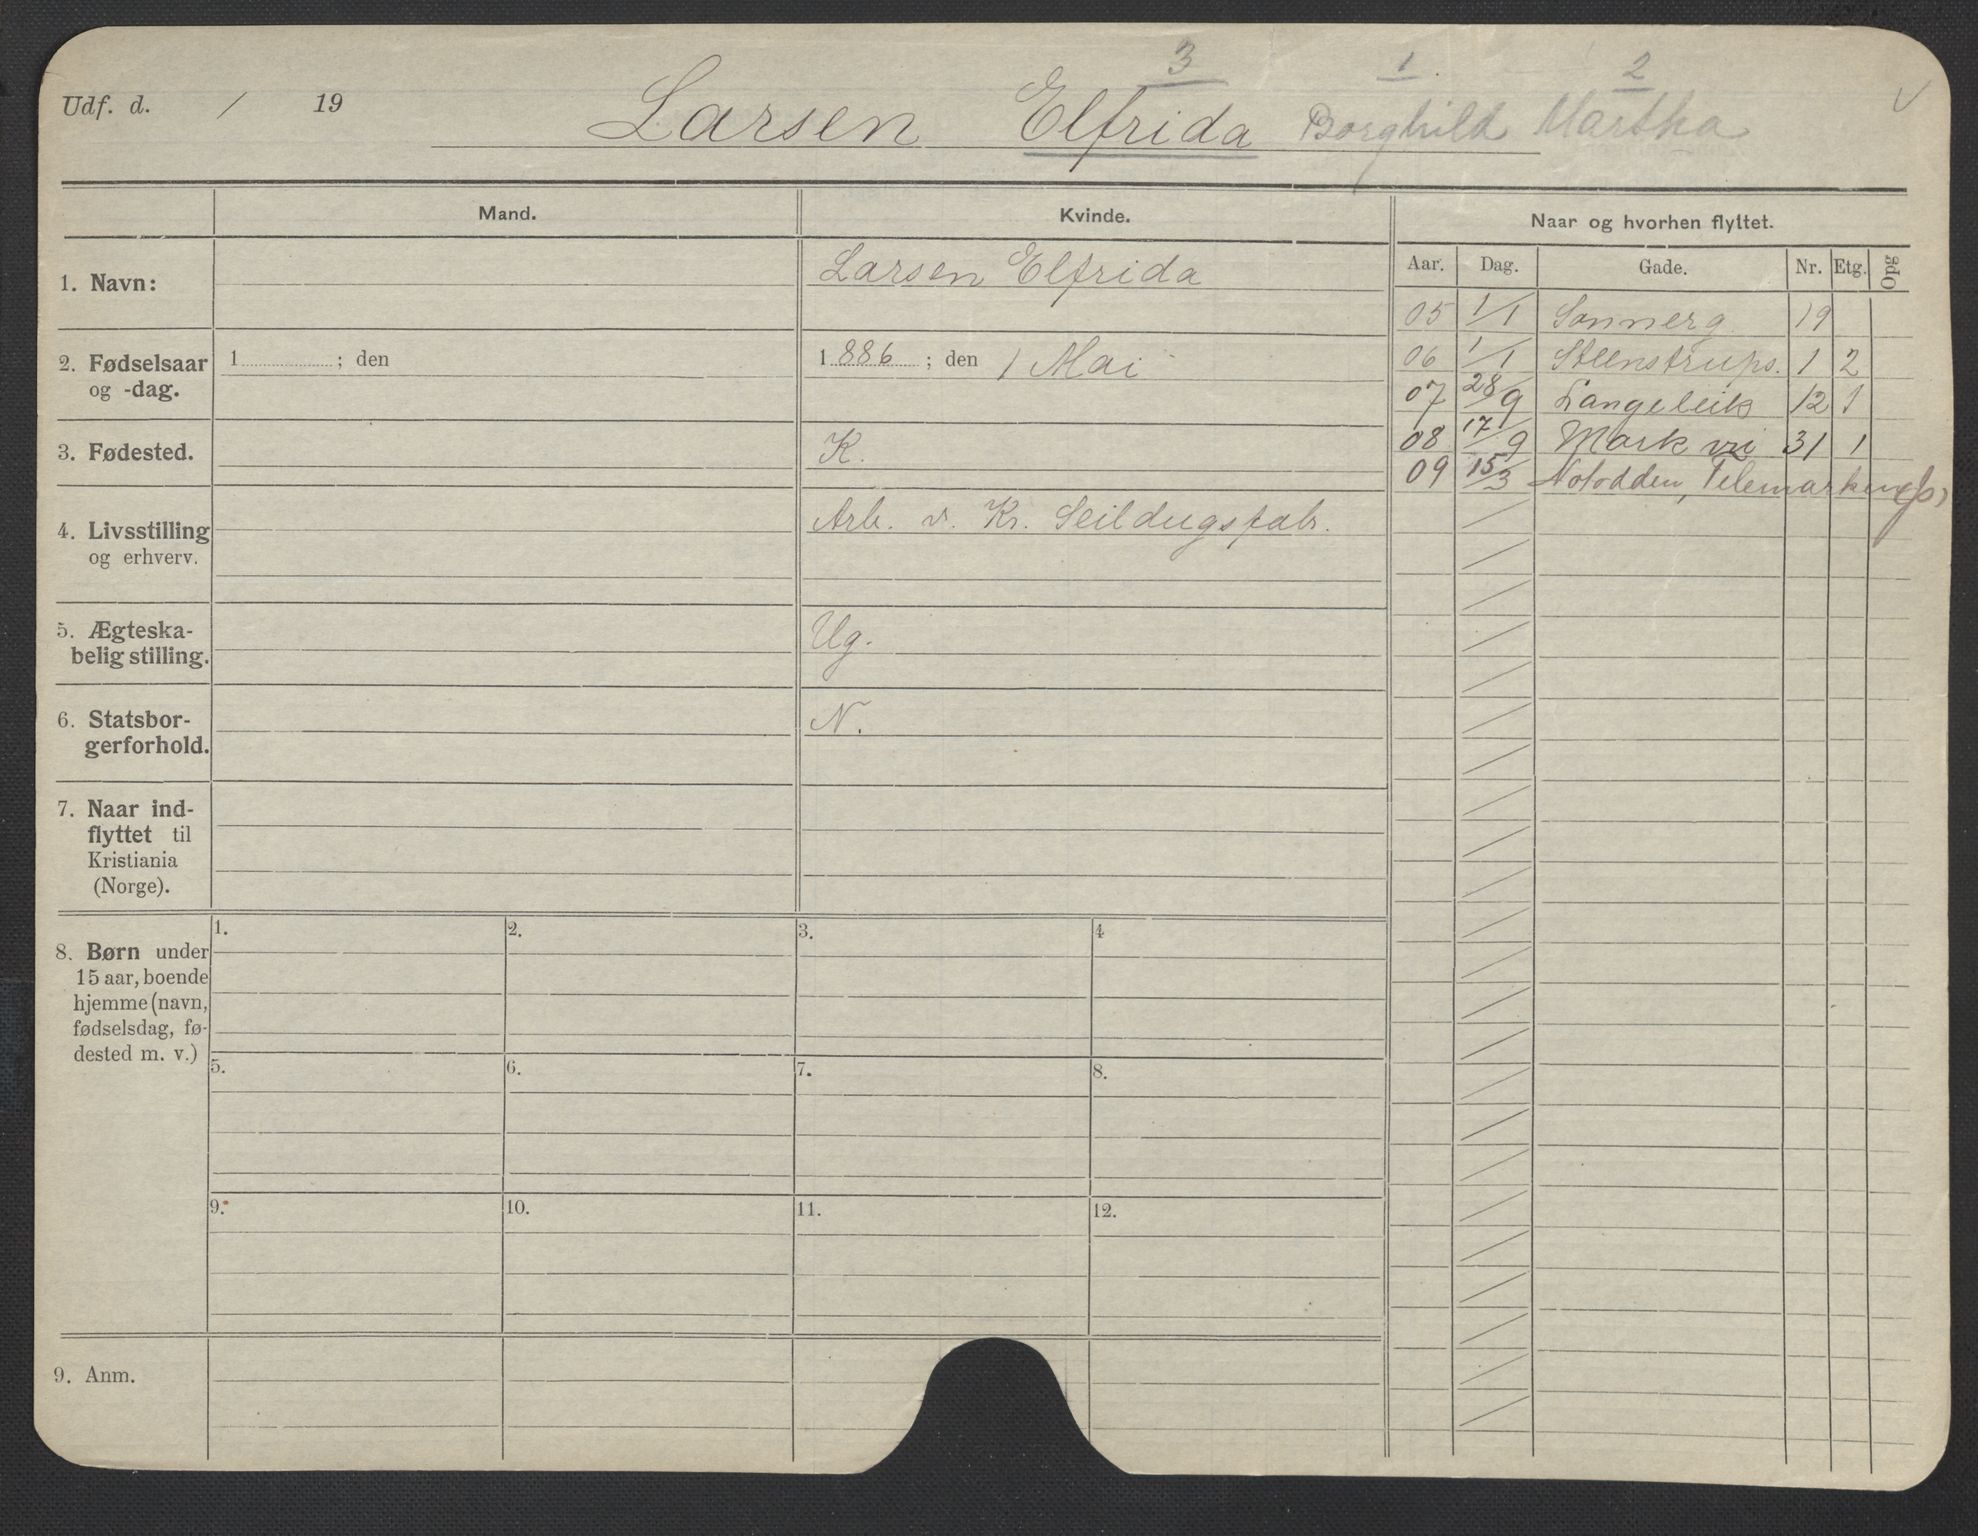 3 1 2
Udf. d. / 19 Larsen Elfrida Borghild Martha
Mand. Kvinde. Naar og hvorhen flyttet.
Aar. Dag. Gade. Nr. Etg. Opg
1. Navn: Larsen Elfrida
05 1/1 Sannerg. 19
2. Fødselsaar og -dag. 1 ; den 1886 ; den 1 Mai
06 1/1 Steenstrups. 1 2
07 28/9 Langeleik 12 1
3. Fødested. K.
08 17/9 Markvei 31 1
09 15/3 Notodden, Telemarken
4. Livsstilling og erhverv. Arb. v. Kr. Seildugsfabr.
5. Ægteska-
belig stilling. Ug.
6. Statsbor-
gerforhold. N.
7. Naar ind-
flyttet til
Kristiania
(Norge).
8. Børn under
15 aar, boende
hjemme (navn,
fødselsdag, fø-
dested m. v.)
1. 2. 3. 4
5. 6. 7. 8.
9. 10. 11. 12.
9. Anm.